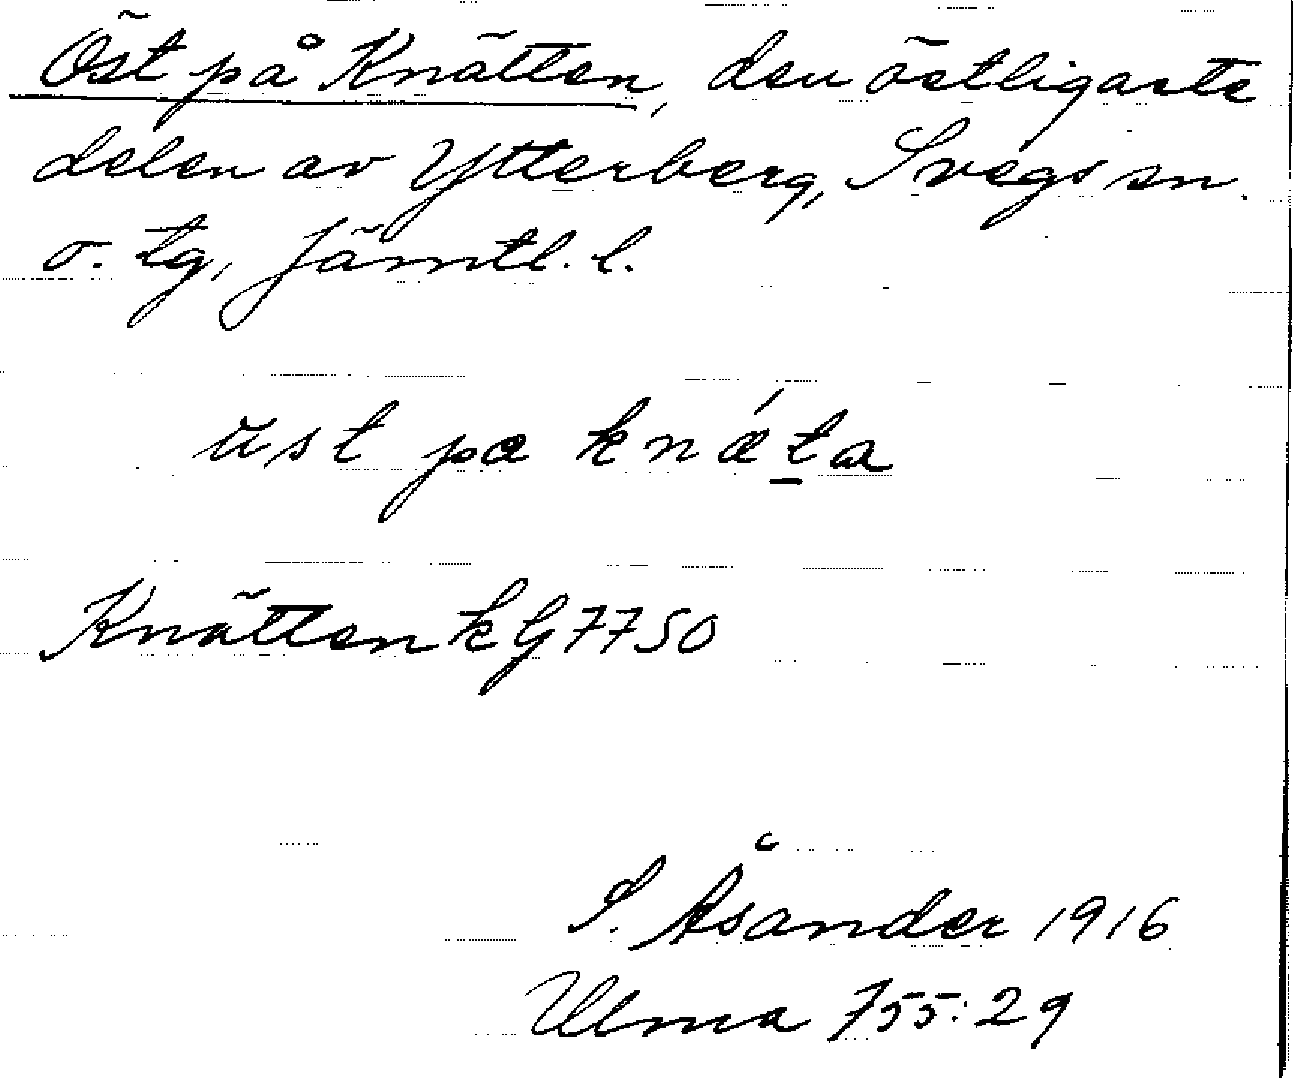 Öst på Knätten, den östligaste
delen av Ytterberg, Svegs sn.
o. tg, Jämtl. l.
ust pa knǽt̲a
Knätten kG7750
S. Åsander 1916
Ulma 755:29